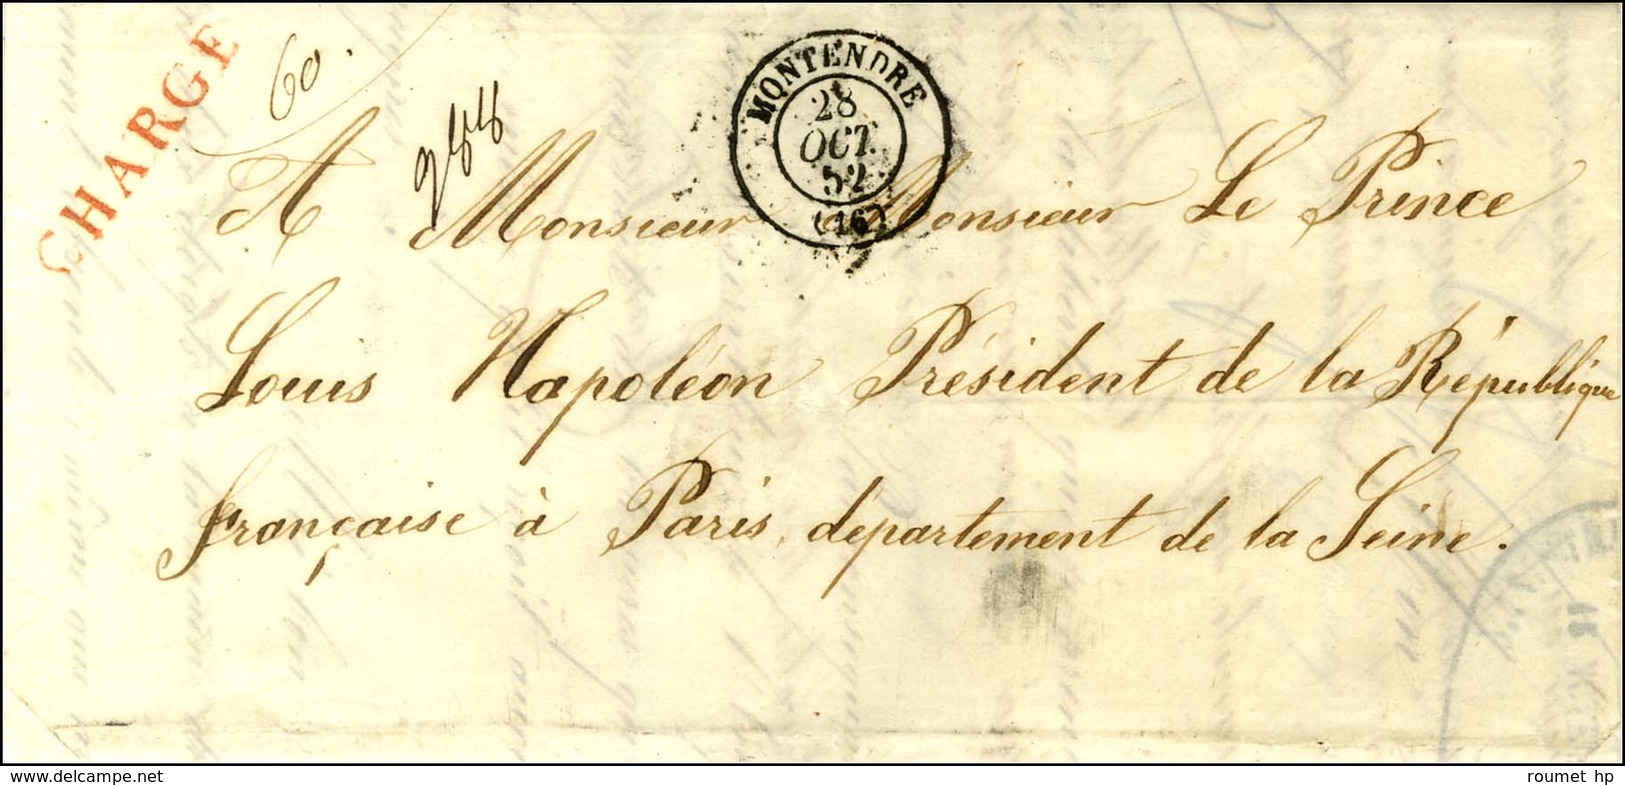 CHARGÉ
60.
MONTENDRE
28
OCT.
52
(16)
A Monsieur Monsieur Le Prince
Louis Napoléon Président de la République
française à Paris, département de la Seine.
www.delcampe.net
roumet hp